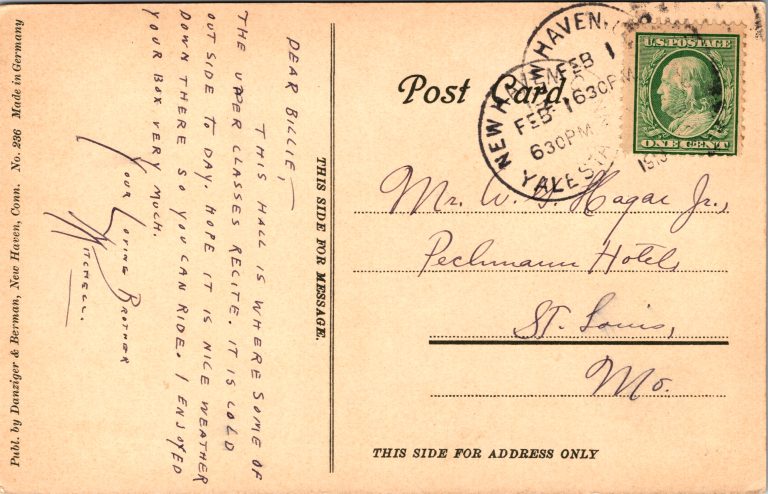 Publ. by Danziger & Berman, New Haven, Conn. No. 236 Made in Germany
DEAR BILLIE,—
THIS HALL IS WHERE SOME OF
THE UPPER CLASSES RECITE. IT IS COLD
OUTSIDE TO DAY. HOPE IT IS NICE WEATHER
DOWN THERE SO YOU CAN RIDE. I ENJOYED
YOUR BOX VERY MUCH.
YOUR LOVING BROTHER
MITCHELL.
THIS SIDE FOR MESSAGE.
Post Card.
NEW HAVEN,
FEB 1
630PM
NEW HAVEN
FEB 1
630PM
YALE STA
U.S. POSTAGE
ONE CENT
Mr. W. Hagar Jr.,
Pechmann Hotel,
St. Louis,
Mo.
THIS SIDE FOR ADDRESS ONLY